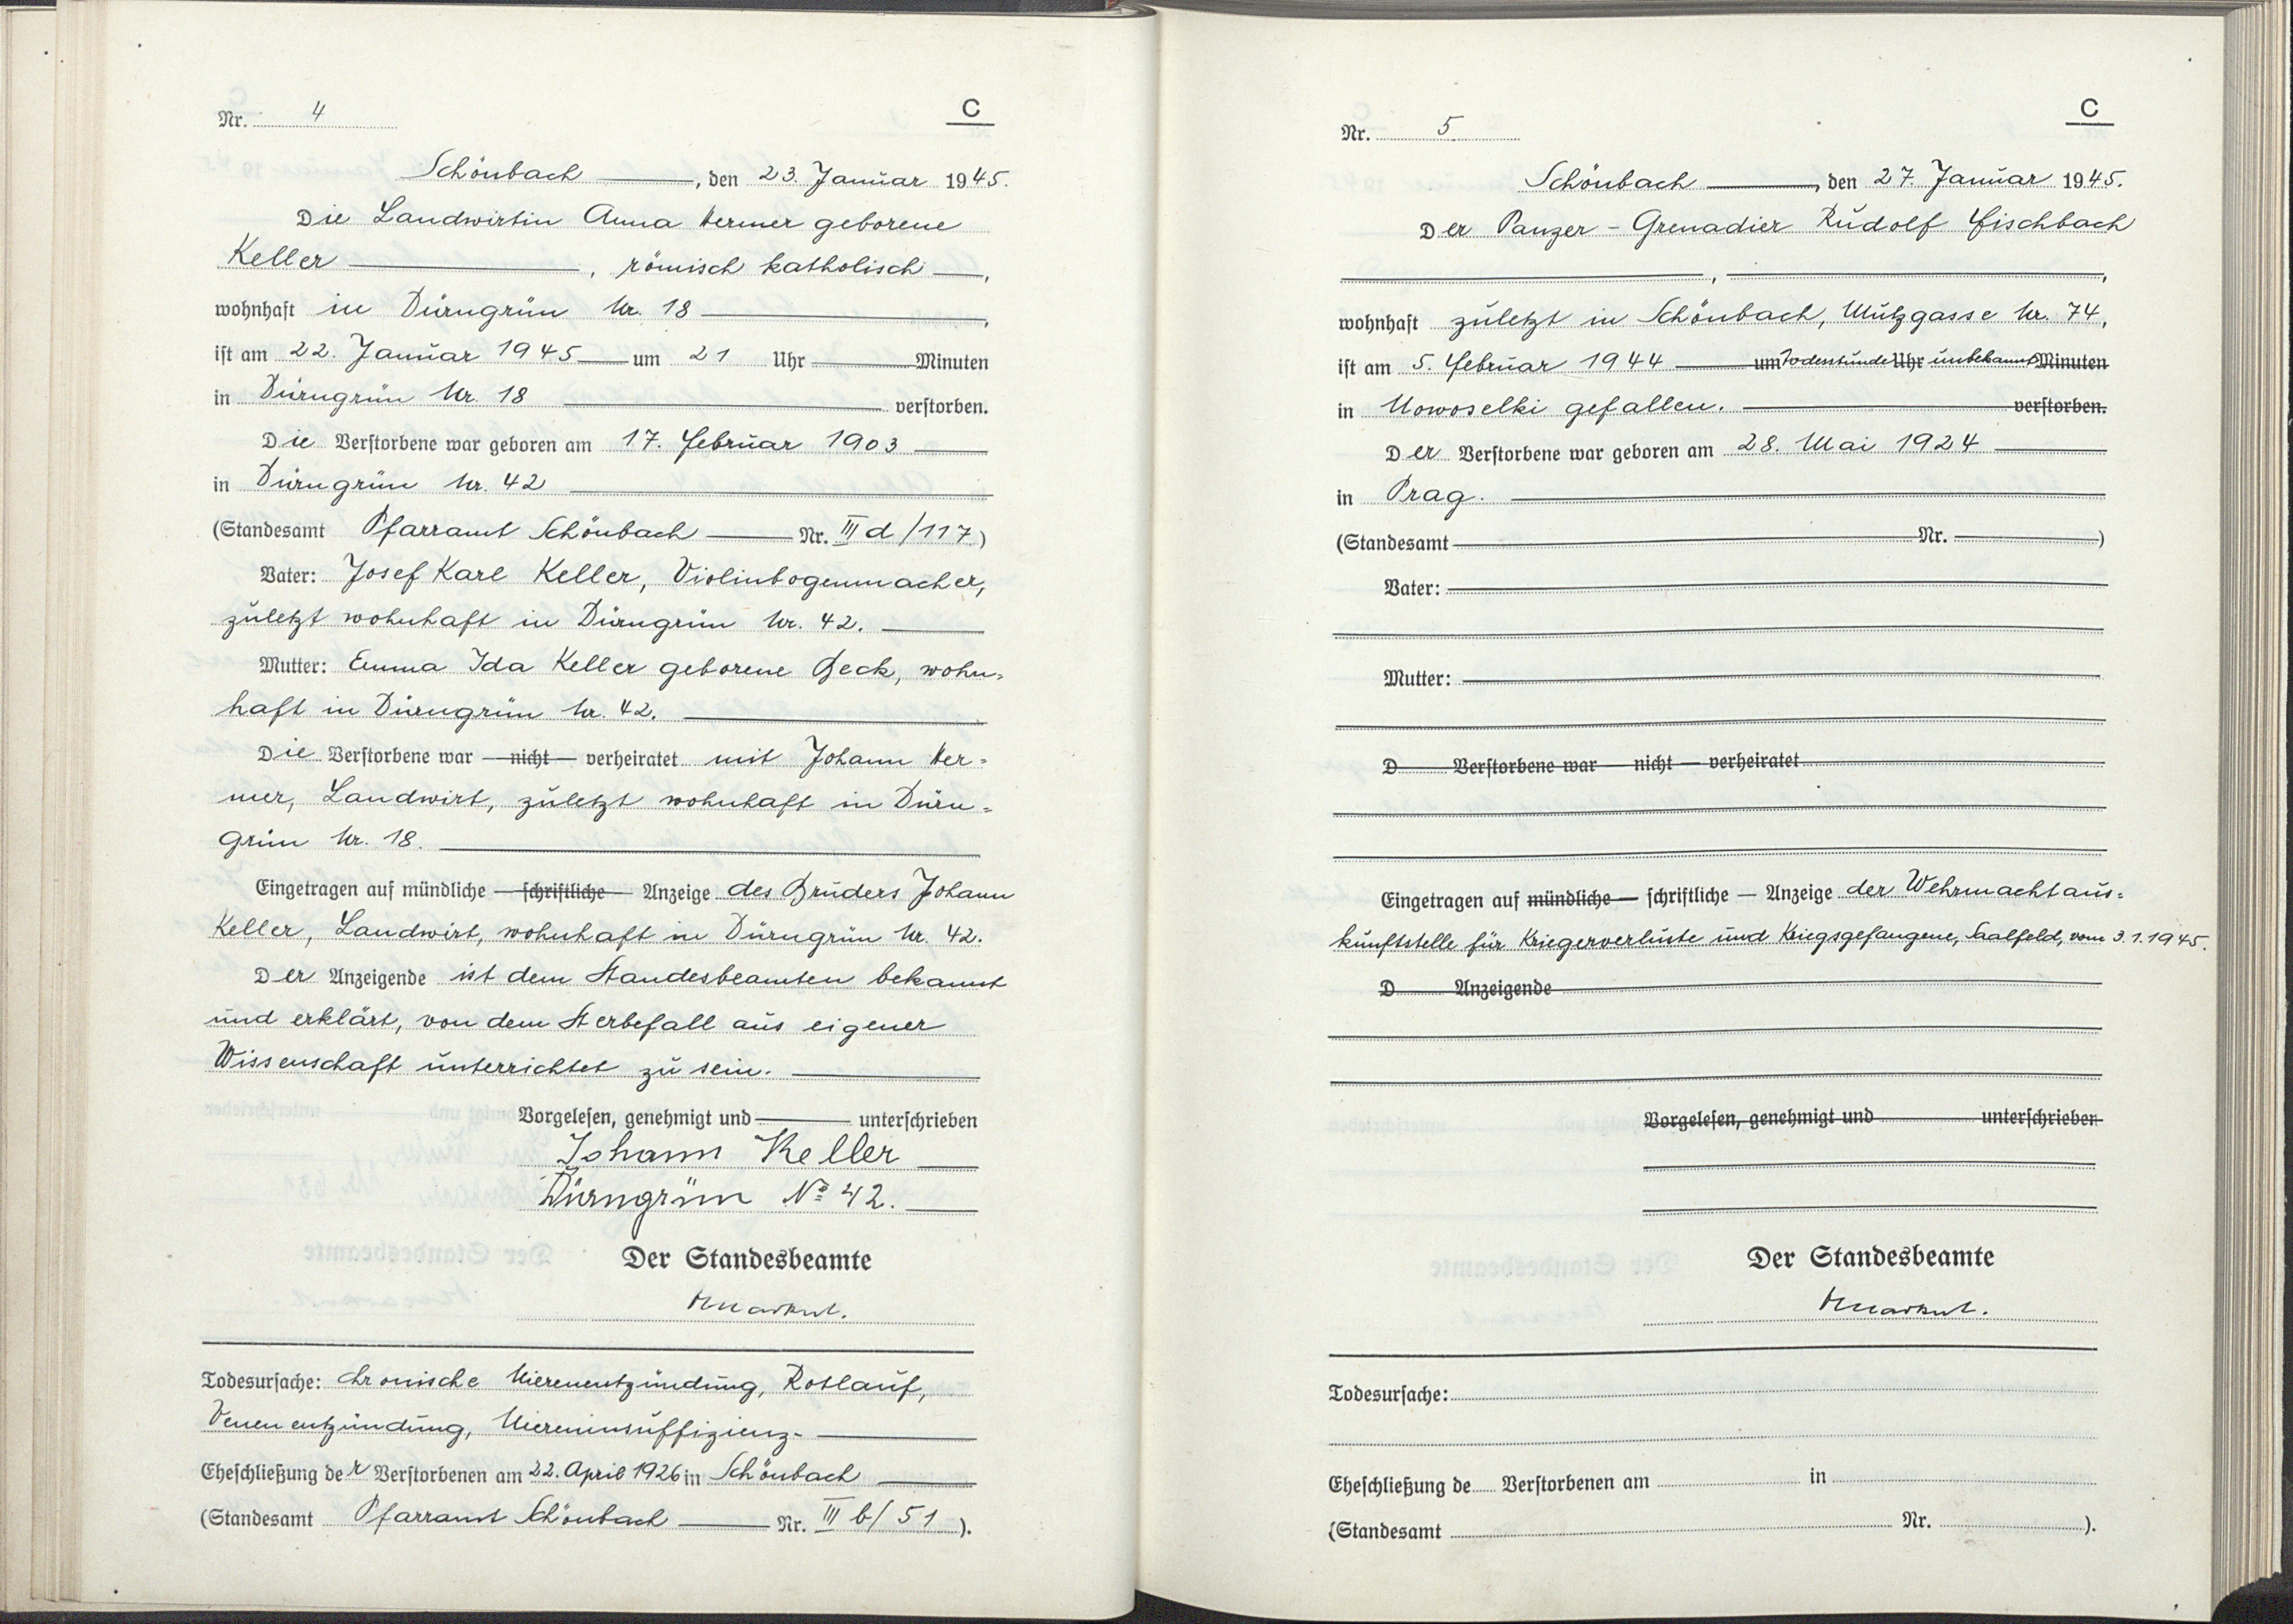 Nr. 4
C
Schönbach, den 23. Januar 1945.
Die Landwirtin Anna Hermer geborene
Keller, römisch katholisch,
wohnhaft in Dürngrün Nr. 18,
ist am 22. Januar 1945 um 21 Uhr Minuten
in Dürngrün Nr. 18 verstorben.
Die Verstorbene war geboren am 17. Februar 1903
in Dürngrün Nr. 42
(Standesamt Pfarramt Schönbach Nr. III d/117)
Vater: Josef Karl Keller, Violinbogenmacher,
zuletzt wohnhaft in Dürngrün Nr. 42.
Mutter: Emma Ida Keller geborene Beck, wohn=
haft in Dürngrün Nr. 42.
Die Verstorbene war — nicht — verheiratet mit Johann Her=
mer, Landwirt, zuletzt wohnhaft in Dürn=
grün Nr. 18.
Eingetragen auf mündliche — schriftliche — Anzeige des Bruders Johann
Keller, Landwirt, wohnhaft in Dürngrün Nr. 42.
Der Anzeigende ist dem Standesbeamten bekannt
und erklärt, von dem Sterbefall aus eigener
Wissenschaft unterrichtet zu sein.
Vorgelesen, genehmigt und unterschrieben
Johann Keller
Dürngrün No 42.
Der Standesbeamte
Todesursache: chronische Nierenentzündung, Rotlauf,
Venenentzündung, Niereninsuffizienz.
Eheschließung der Verstorbenen am 22. April 1926 in Schönbach
(Standesamt Pfarramt Schönbach Nr. III b/51).
Nr. 5
C
Schönbach, den 27. Januar 1945.
Der Panzer-Grenadier Rudolf Fischbach
, ,
wohnhaft zuletzt in Schönbach, Mützgasse Nr. 74,
ist am 5. Februar 1944 um Todesstunde Uhr unbekannt Minuten
in Nowoselki gefallen. verstorben.
Der Verstorbene war geboren am 28. Mai 1924
in Prag.
(Standesamt Nr. )
Vater:
Mutter:
D Verstorbene war — nicht — verheiratet
Eingetragen auf mündliche — schriftliche — Anzeige der Wehrmachtaus=
kunftstelle für Kriegerverluste und Kriegsgefangene, Saalfeld, vom 3.1.1945.
D Anzeigende
Vorgelesen, genehmigt und unterschrieben
Der Standesbeamte
Todesursache:
Eheschließung de Verstorbenen am in
(Standesamt Nr. ).